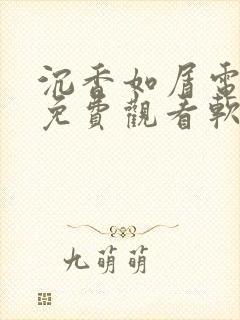 沉香如屑電
免費觀看軟
九萌萌